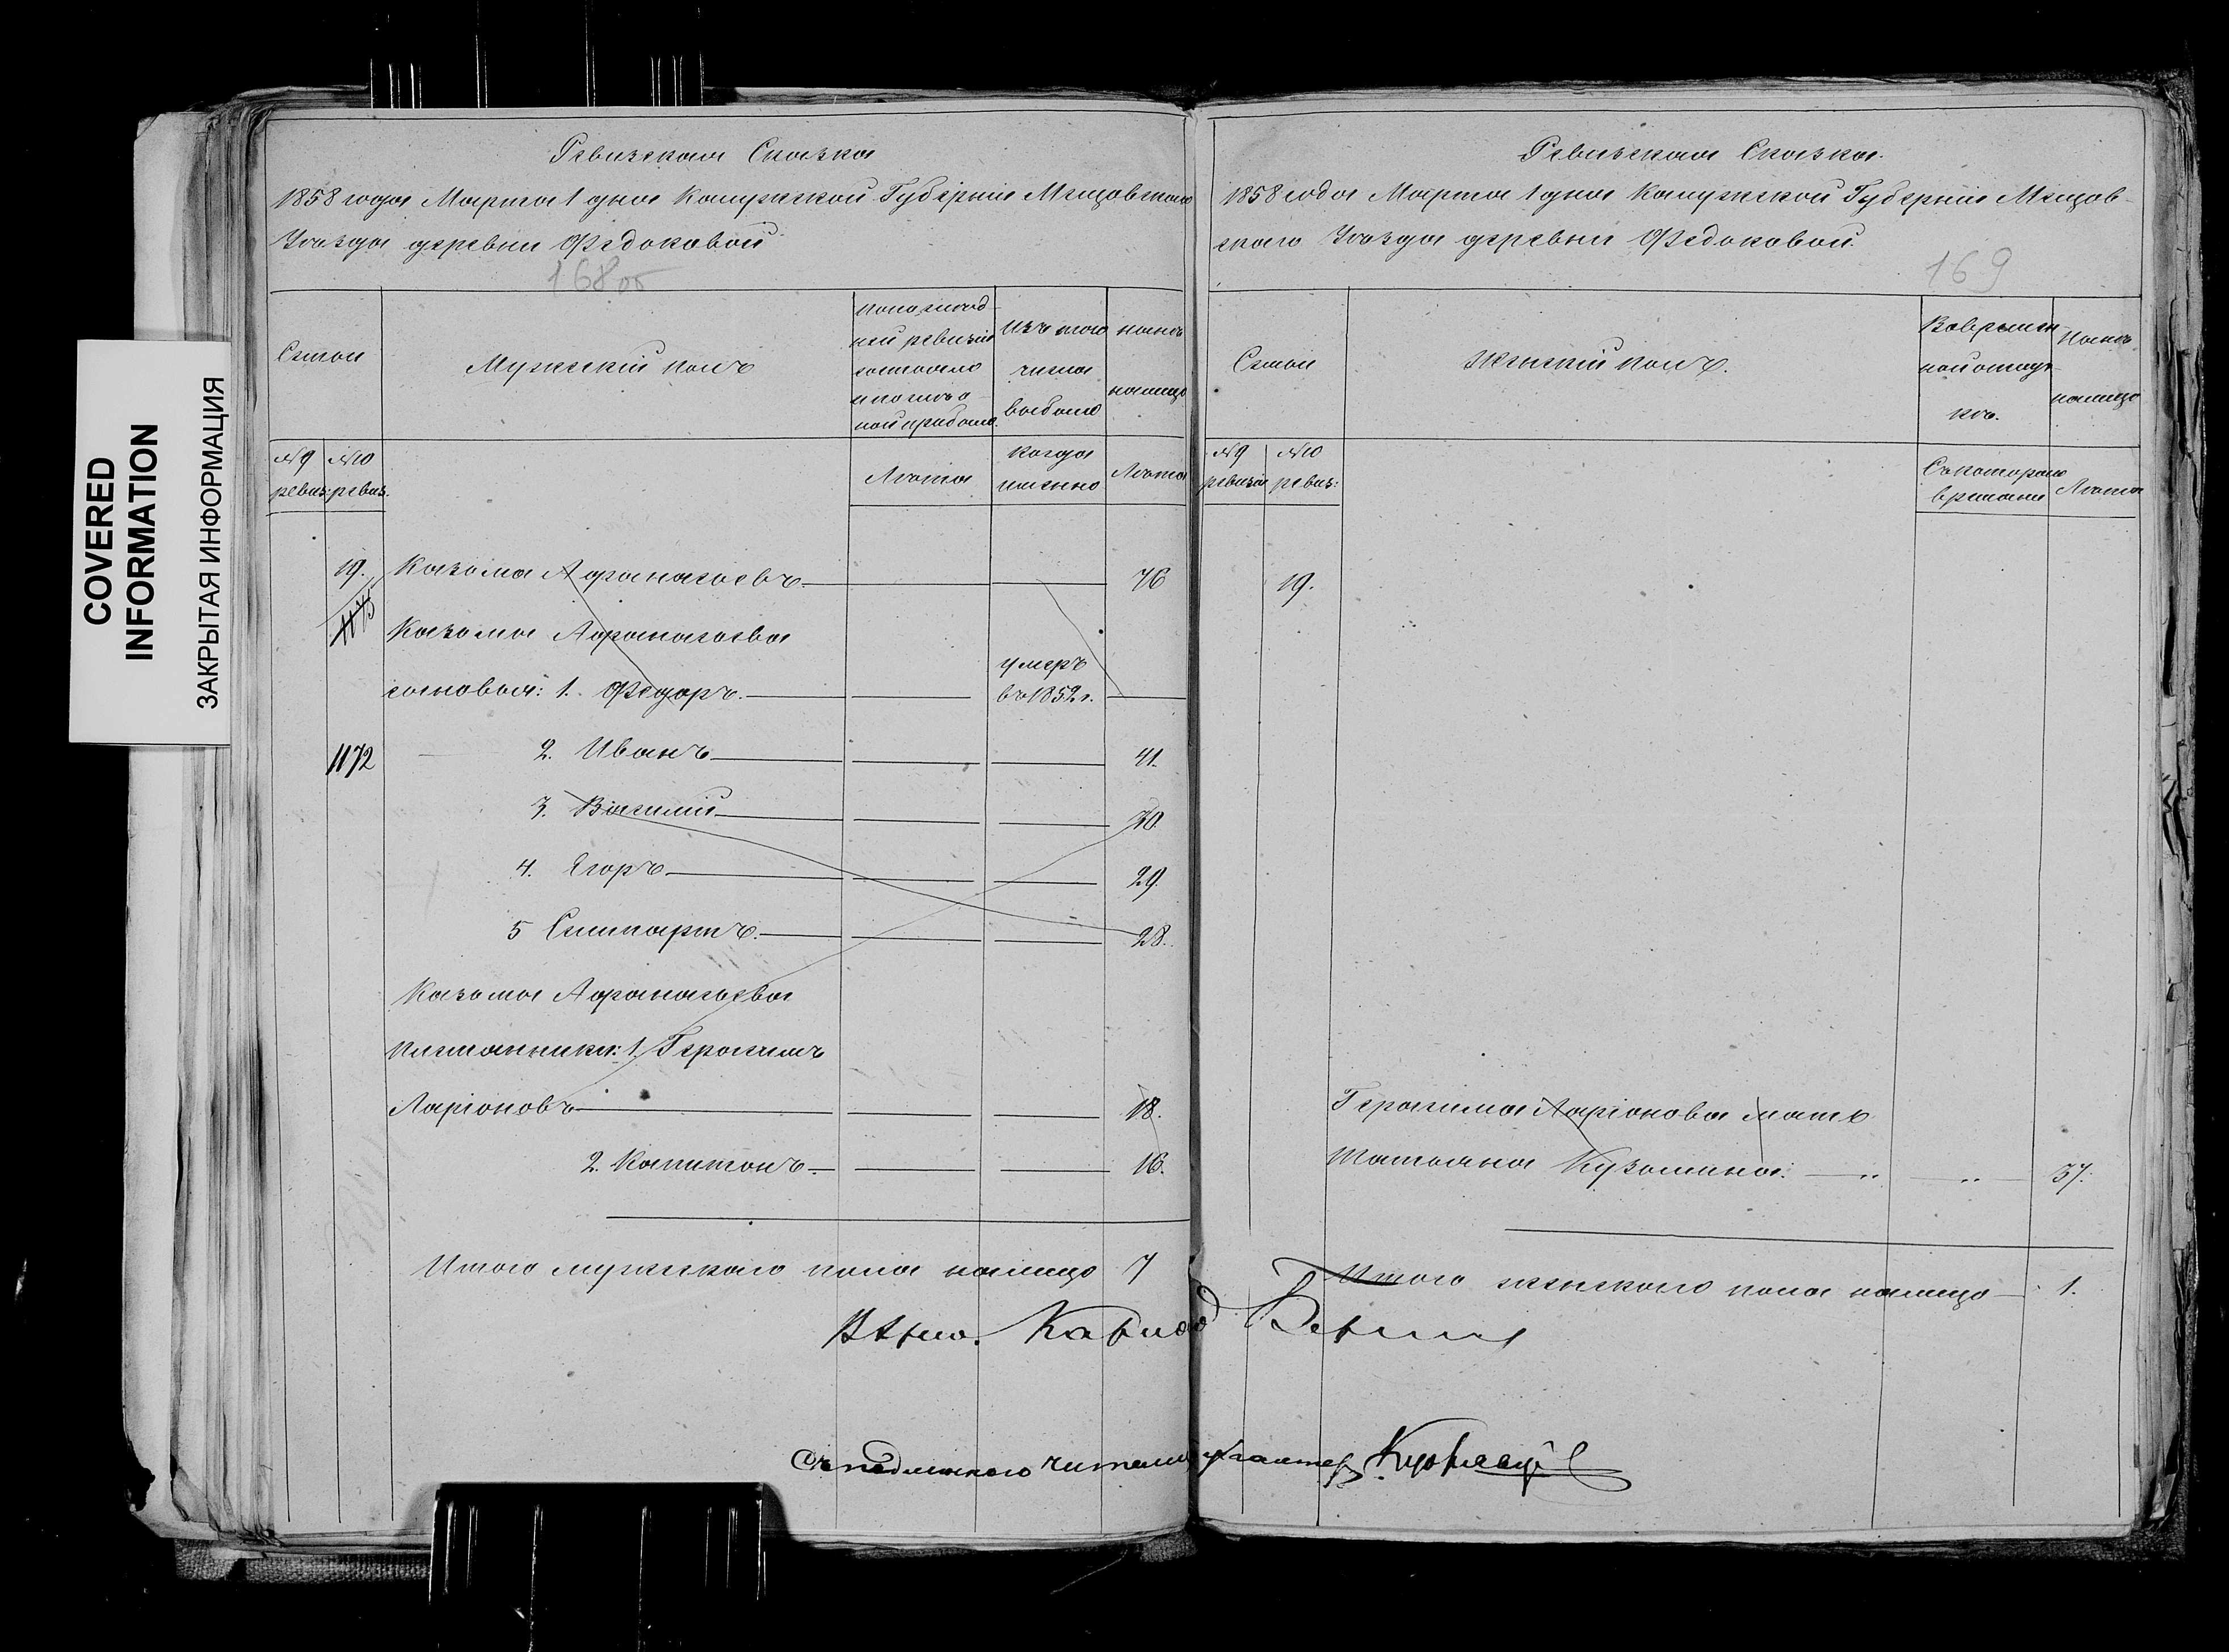 COVERED
INFORMATION
ЗАКРЫТАЯ ИНФОРМАЦИЯ
Ревизская Сказка
1858 года Марта 1 дня Калужской Губерніи Мещовскаго
Уѣзда деревни Ѳедоковой
168 об
Семьи
Мужескій полъ
По послѣд-
ней ревизіи
состояло
и послѣ о
ной прибыло.
Изъ того
числа
выбыло
Нынѣ
налицо
№ 9
ревиз:
№ 10
ревиз.
Лѣта
Когда
именно
Лѣта
19. Козьма Афанасьевъ 76
1175
Козьмы Афанасьева
сыновья: 1. Ѳедоръ. умеръ
въ 1852 г.
1172 2. Иванъ 41.
3. Василій 30.
4. Егоръ 29.
5 28.
Козьмы Афанасьева
племянники: 1. Герасимъ
Ларіоновъ 18.
2. Капитонъ 16.
Итого мужескаго пола налицо 7
Съ подлиннаго читалъ
Ревизская Сказка.
1858 года Марта 1 дня Калужской Губерніи Мещов-
скаго Уѣзда деревни Ѳедоковой.
169
Семьи
Женскій полъ.
Во времен-
ной отлуч-
кѣ.
Нынѣ
налицо
№ 9
ревизіи
№ 10
ревиз:
Съ котораго
времени
Лѣта
19.
Герасима Ларіонова мать
Татьяна Кузьмина. 37.
Итого женскаго пола налицо 1.